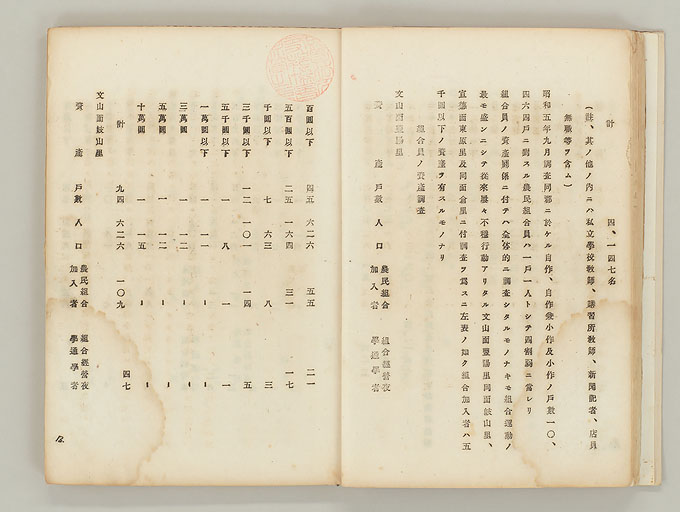 計 四、一四七名
(註、其ノ他ノ內ニハ私立學校敎師、講習所敎師、新聞記者、店員
無職等ヲ含ム)
昭和五年九月調査同郡ニ於ケル自作、自作兼小作及小作ノ戶數一〇、
四六四戶ニ對スル農民組合員ハ一戶一人トシテ四割弱ニ當レリ
組合員ノ資產關係ニ付テハ全体的ニ調査シタルモノナキモ組合運動ノ
最モ盛ンニシテ從來屢々不穩行動アリタル文山面豐陽里同面歧山里、
宜德面東原里及同面倉里ニ付調査ヲ爲スニ左表ノ如ク組合加入者ハ五
千圓以下ノ資產ヲ有スルモノナリ
組合員ノ資產調査
文山面豐陽里
資產 戶數 人口 農民組合加入者 組合經營夜學通學者
百圓以下 四五 六二六 五五 二一
五百圓以下 二五 一六四 三一 一七
千圓以下 七 六三 八 三
三千圓以下 一二 一〇一 一四 五
五千圓以下 一 八 一 一
一萬圓以下 一 一一
三萬圓 一 一二
五萬圓 一 一二
十萬圓 一 一五
計 九四 六二六 一〇九 四七
文山面歧山里
資產 戶數 人口 農民組合加入者 組合經營夜學通學者